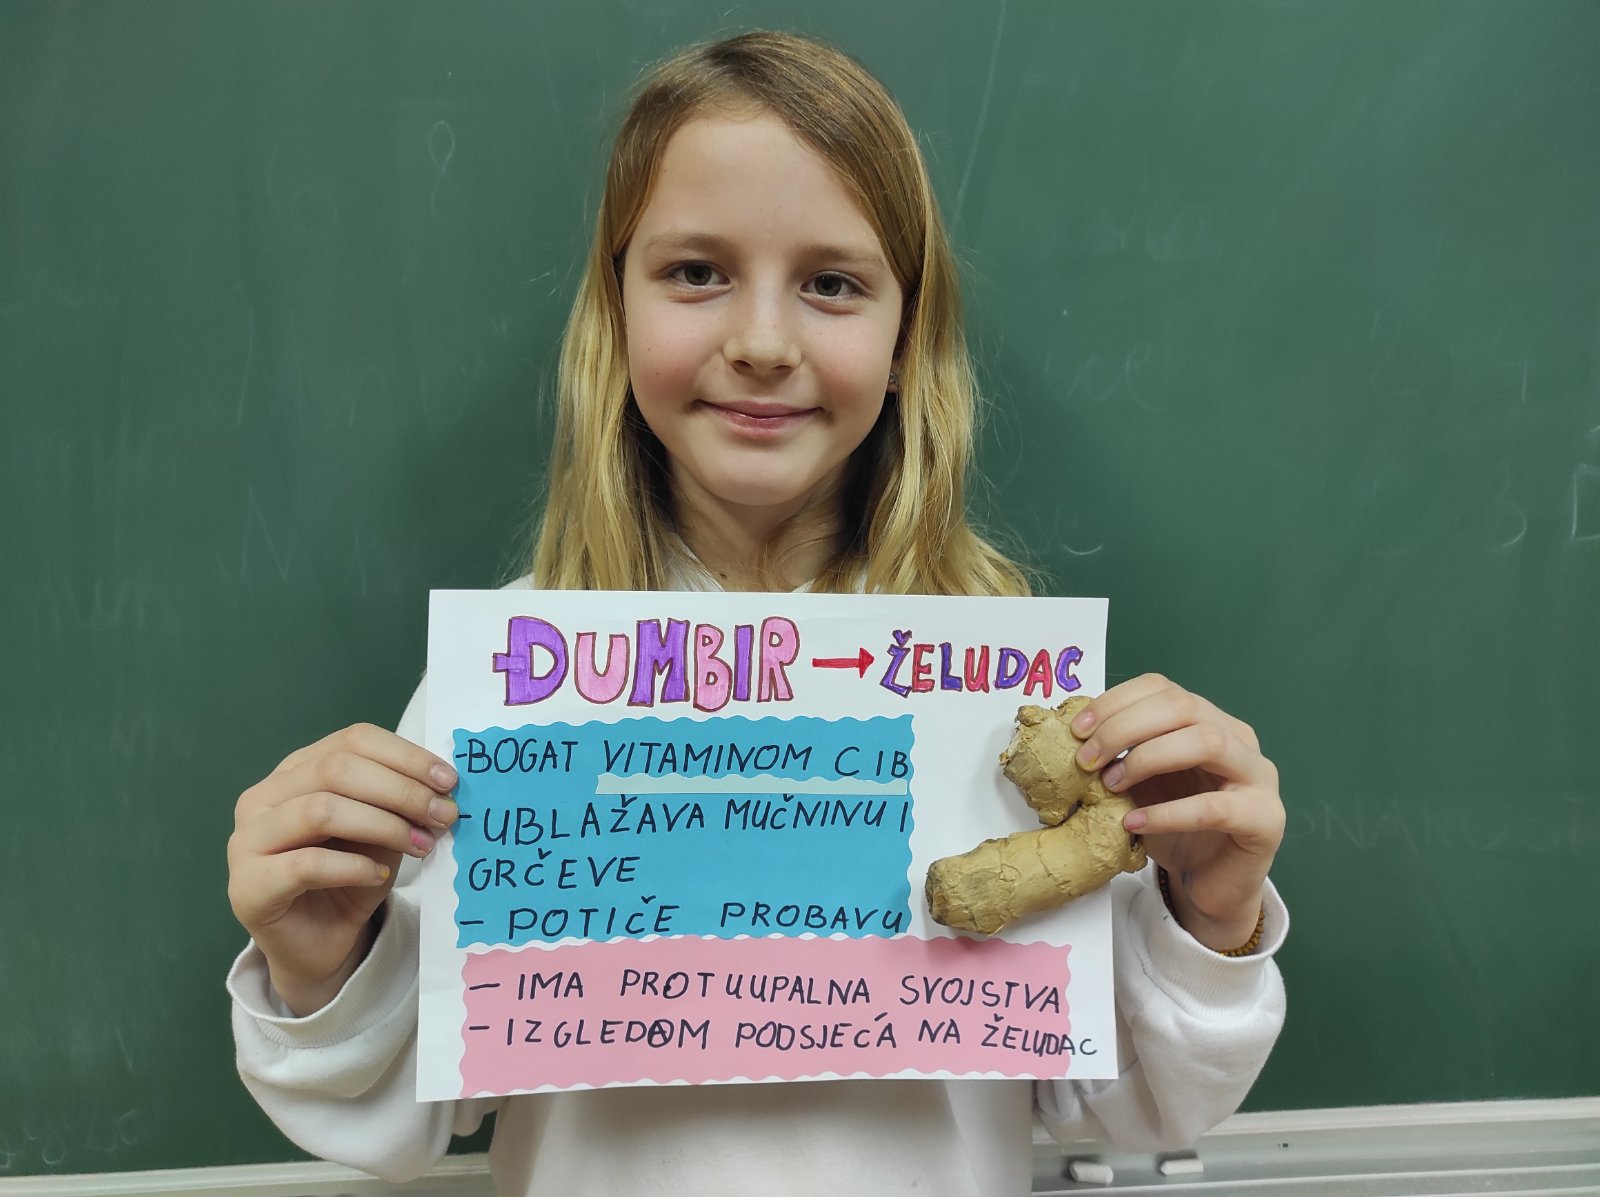 ĐUMBIR → ŽELUDAC
-BOGAT VITAMINOM C I B
- UBLAŽAVA MUČNINU I
GRČEVE
- POTIČE PROBAVU
- IMA PROTUUPALNA SVOJSTVA
- IZGLEDOM PODSJEĆA NA ŽELUDAC